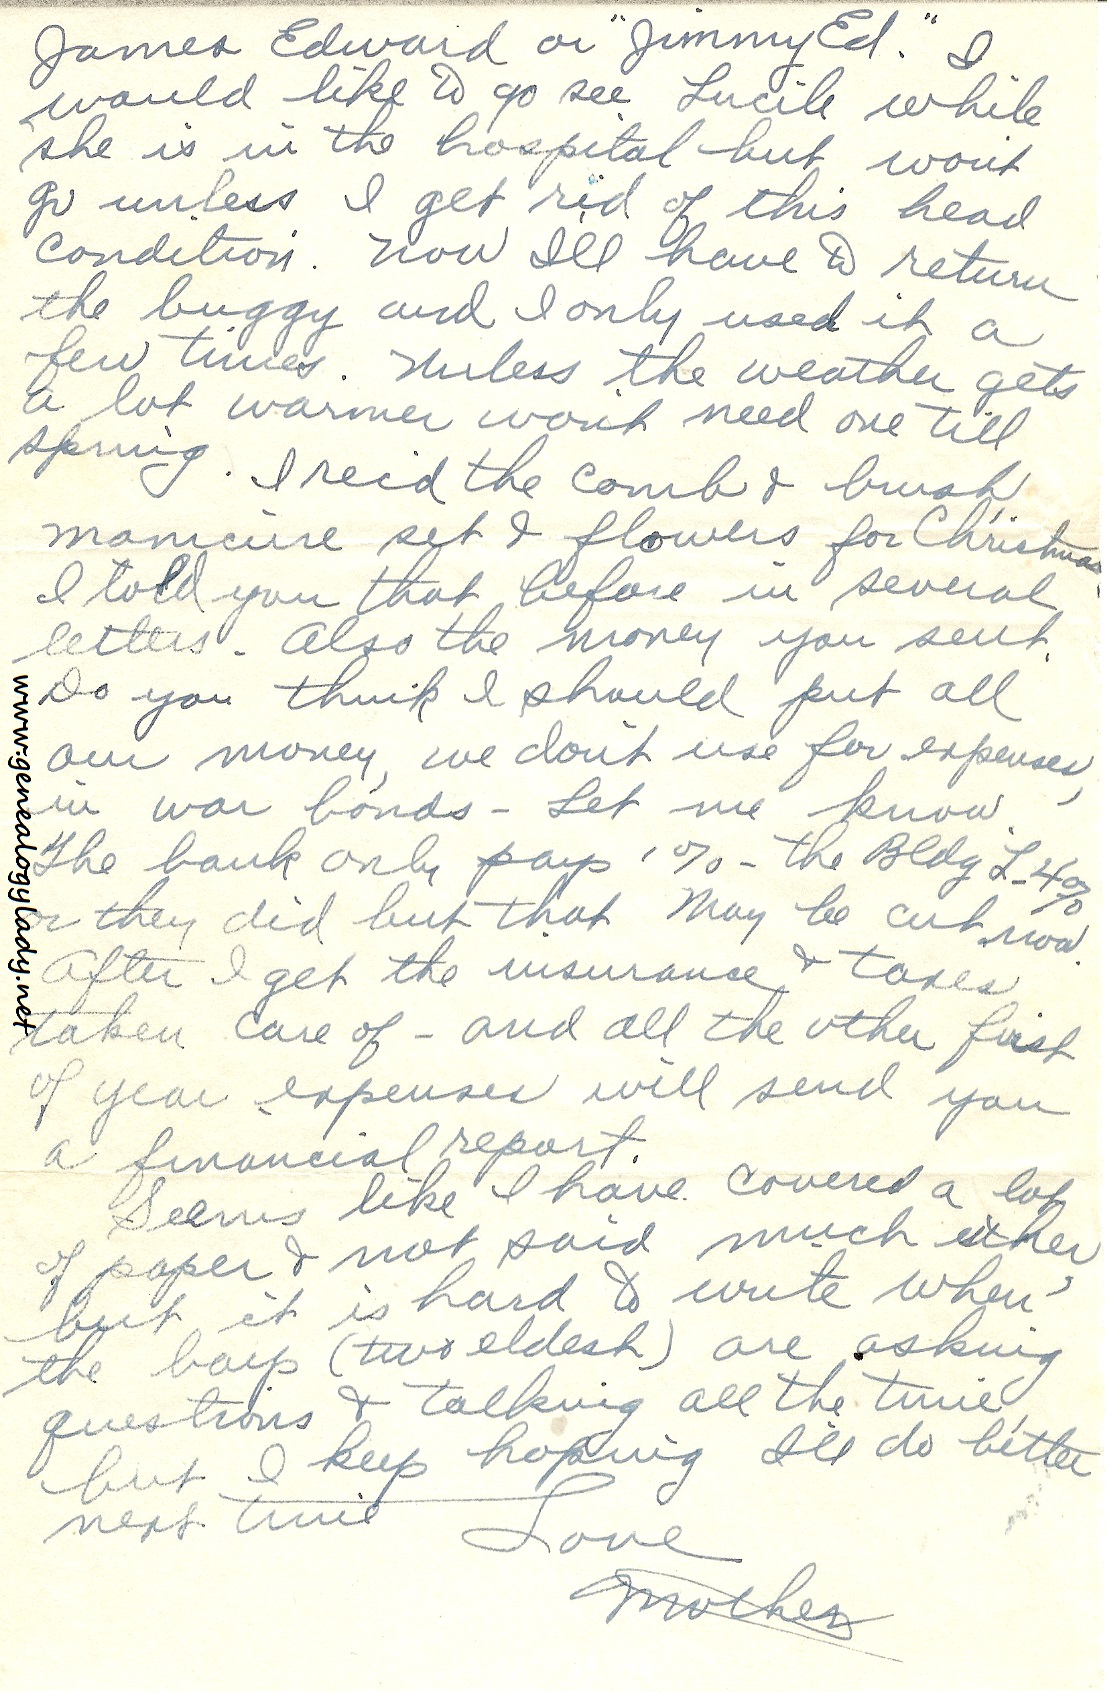 James Edward or "JimmyEd." I
would like to go see Lucile while
she is in the hospital but wont
go unless I get rid of this head
condition. Now Ill have to return
the buggy and I only used it a
few times. Unless the weather gets
a lot warmer wont need one till
spring. I rec'd the comb & brush,
manicure set & flowers for Christmas
I told you that before in several
letters - Also the money you sent.
Do you think I should put all
our money, we don't use for expenses,
in war bonds - Let me know.
The bank only pays 1% - the Bldg L - 4%
or they did but that may be cut now.
After I get the insurance & taxes
taken care of - and all the other first
of year expenses will send you
a financial report.
Seems like I have covered a lot
of paper & not said much either
but it is hard to write when
the boys (two eldest) are asking
questions & talking all the time,
but I keep hoping I'll do better
next time
Love
Mother
www.genealogylady.net